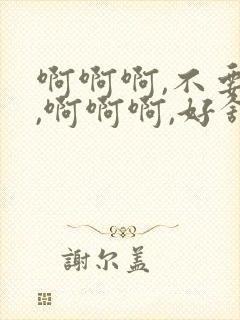 啊啊啊,不要
,啊啊啊,好舒
謝尔盖